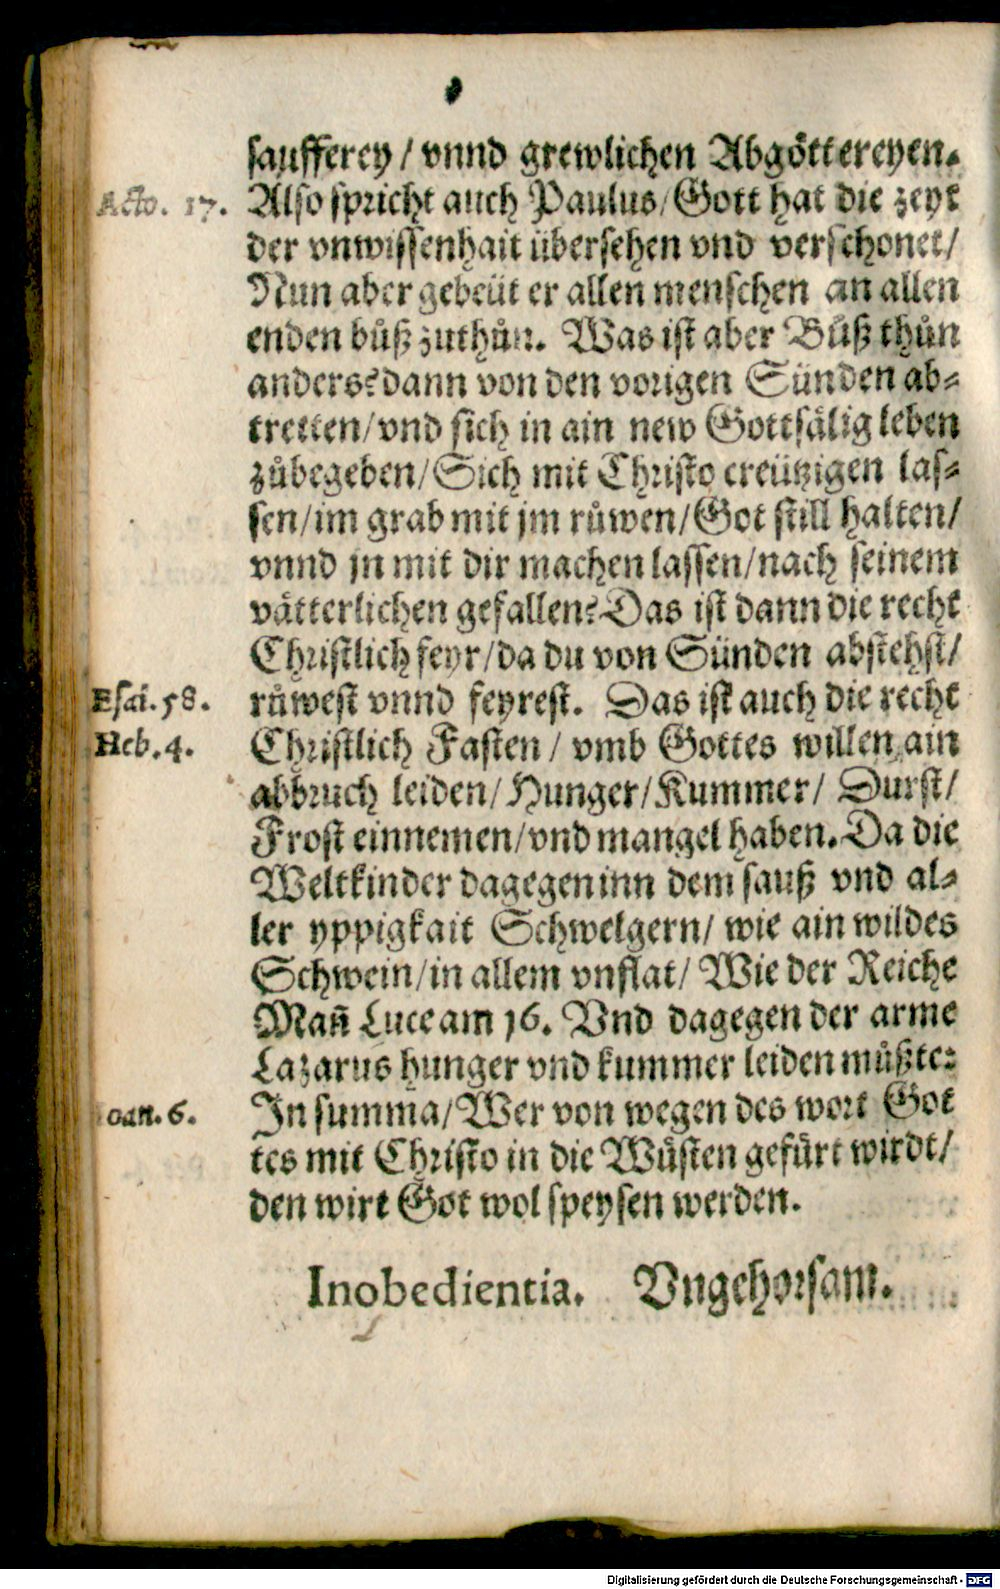 saufferey / vnnd grewlichen Abgöttereyen.
Acto. 17. Also spricht auch Paulus/ Gott hat die zeyt
der vnwissenhait übersehen vnd verschonet/
Nun aber gebeüt er allen menschen an allen
enden bůß zuthůn. Was ist aber Bůß thůn
anders? dann von den vorigen Sünden ab⸗
tretten/ vnd sich in ain new Gottsälig leben
zůbegeben/ Sich mit Christo creützigen las⸗
sen/ im grab mit jm růwen/ Got still halten/
vnnd jn mit dir machen lassen/ nach seinem
vätterlichen gefallen? Das ist dann die recht
Christlich feyr/ da du von Sünden abstehst/
Esai. 58. růwest vnnd feyrest. Das ist auch die recht
Heb. 4. Christlich Fasten / vmb Gottes willen ain
abbruch leiden/ Hunger/ Kummer/ Durst/
Frost einnemen/ vnd mangel haben. Da die
Weltkinder dagegen inn dem sauß vnd al⸗
ler yppigkait Schwelgern/ wie ain wildes
Schwein/ in allem vnflat/ Wie der Reiche
Mañ Luce am 16. Vnd dagegen der arme
Lazarus hunger vnd kummer leiden můßte:
oan. 6. In summa/ Wer von wegen des wort Got
tes mit Christo in die Wüsten gefürt wirdt/
den wirt Got wol speysen werden.
Inobedientia. Vngehorsam.
Digitalisierung gefördert durch die Deutsche Forschungsgemeinschaft - DFG